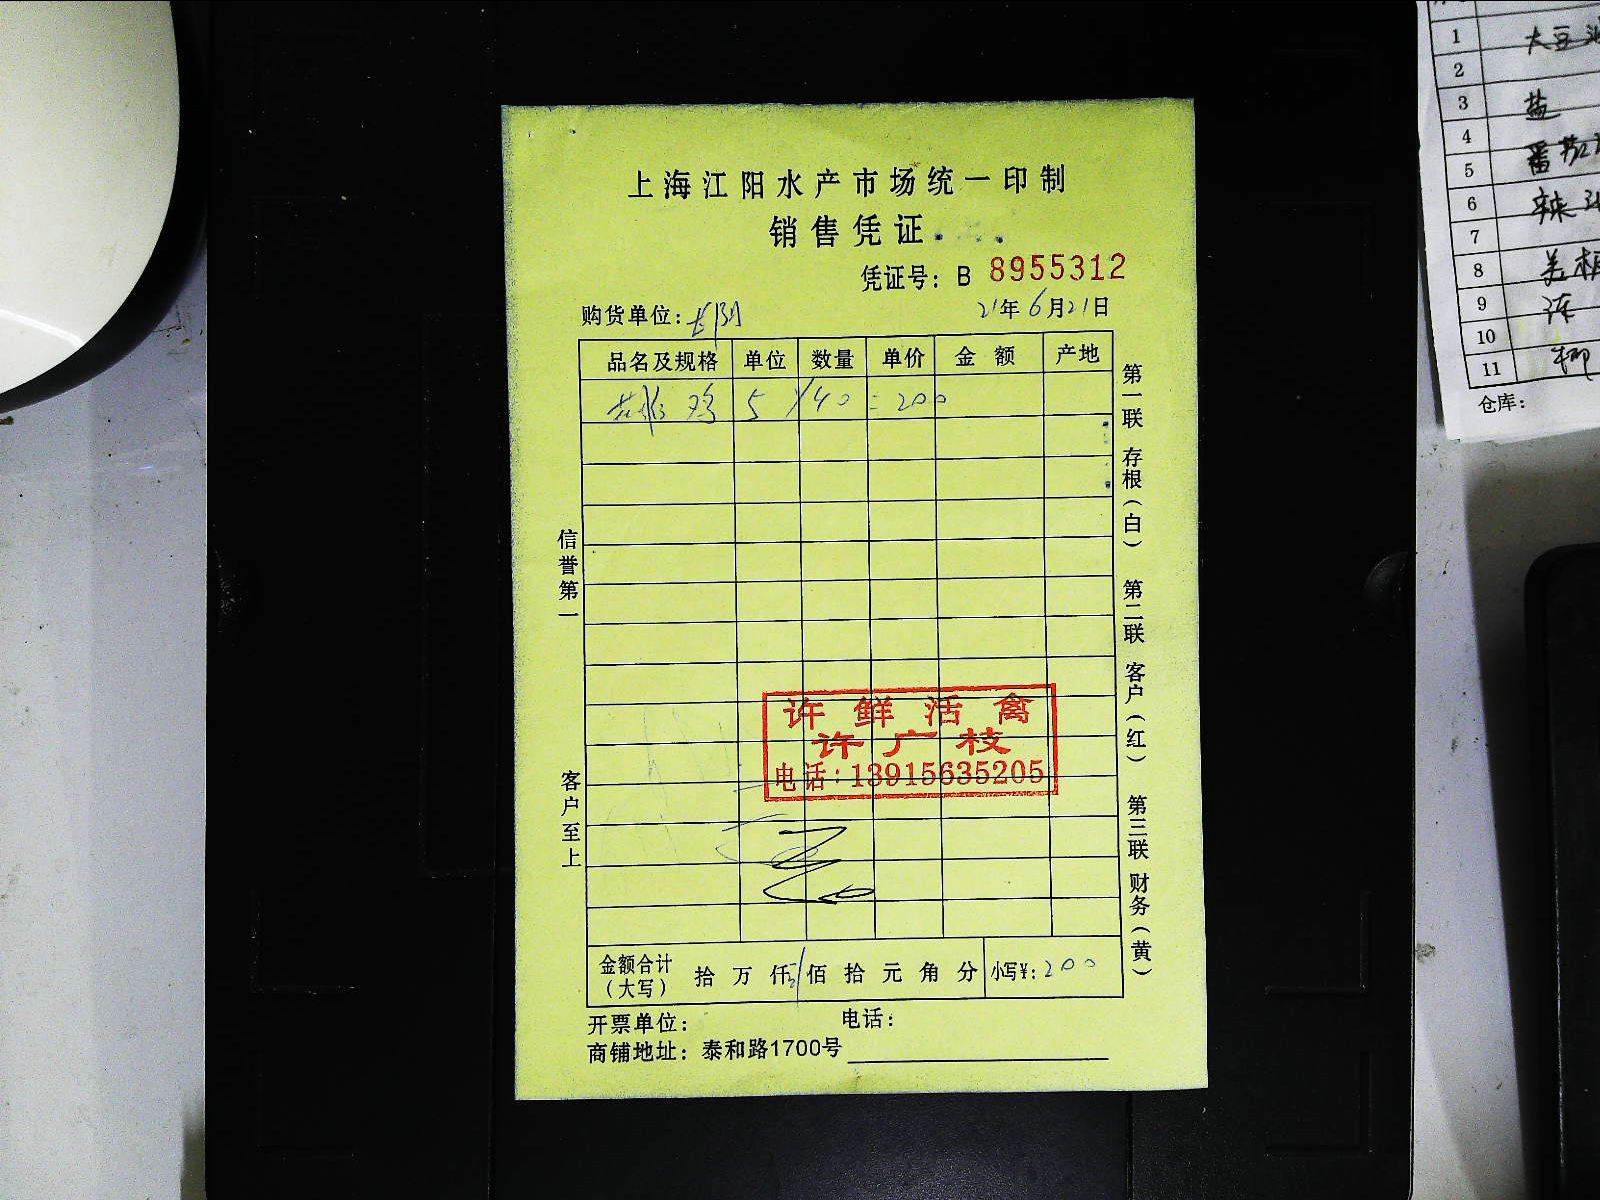 上海江阳水产市场统一印制
销售凭证
凭证号：B 8955312
购货单位：
21年6月21日
品名及规格 单位 数量 单价 金额 产地
鸡 5 × 40 = 200
第一联 存根（白） 第二联 客户（红） 第三联 财务（黄）
信誉第一
客户至上
许鲜活禽
许广枝
电话：13915635205
金额合计（大写） 拾 万 仟 佰 拾 元 角 分 小写¥：200
开票单位： 电话：
商铺地址：泰和路1700号
1 大豆
2
3 盐
4
5 番茄
6 辣
7
8
9
10
11 柳
仓库：